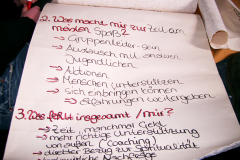 2. Was macht mir zur Zeit am
meisten Spaß?
→ Gruppenleiter-sein
→ Austausch mit anderen
Jugendlichen
→ Aktionen
→ Menschen unterstützen
→ sich einbringen können
→ Erfahrungen weitergeben
3. Was fehlt insgesamt / mir?
→ Zeit, manchmal Geld
→ mehr richtige Unterstützung
von außen (Coaching)
→ direkter Bezug zur Spiritualität
Nachfrage